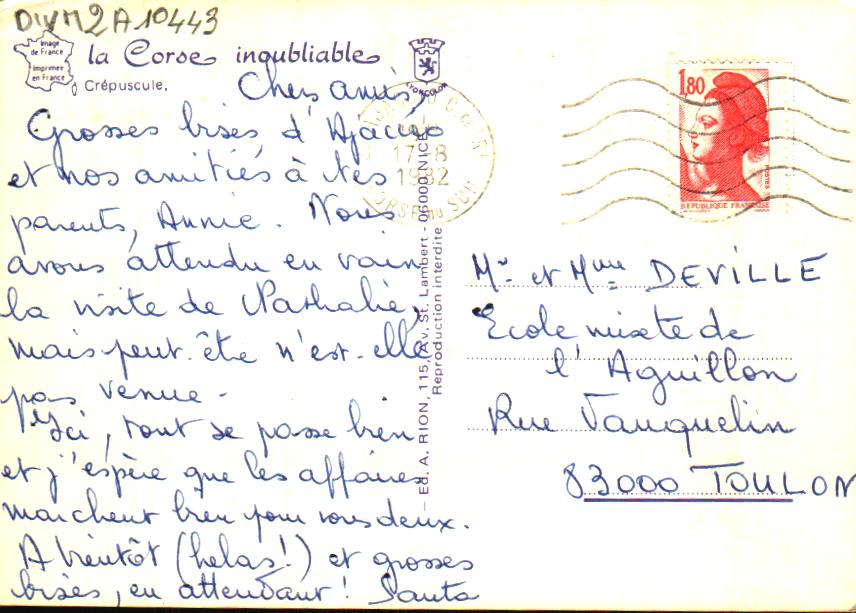 DWM2A10443
Image
de France
Imprimée
en France
la Corse inoubliable
Crépuscule.
LYONCOLOR
Chers amis,
Grosses bises d'Ajaccio
et nos amitiés à tes
parents, Annie. Nous
avons attendu en vain
la visite de Nathalie,
mais peut-être n'est-elle
pas venue.
Ici, tout se passe bien
et j'espère que les affaires
marchent bien pour vous deux.
A bientôt (hélas!) et grosses
bises, en attendant! Santa
Ed. A. RION, 115, Av. St. Lambert - 06000 NICE
Reproduction interdite
17-8
1982
CORSE DU SUD
1,80
POSTES
REPUBLIQUE FRANÇAISE
Mr et Mme DEVILLE
Ecole mixte de
l'Aguillon
Rue Vauquelin
83000 TOULON